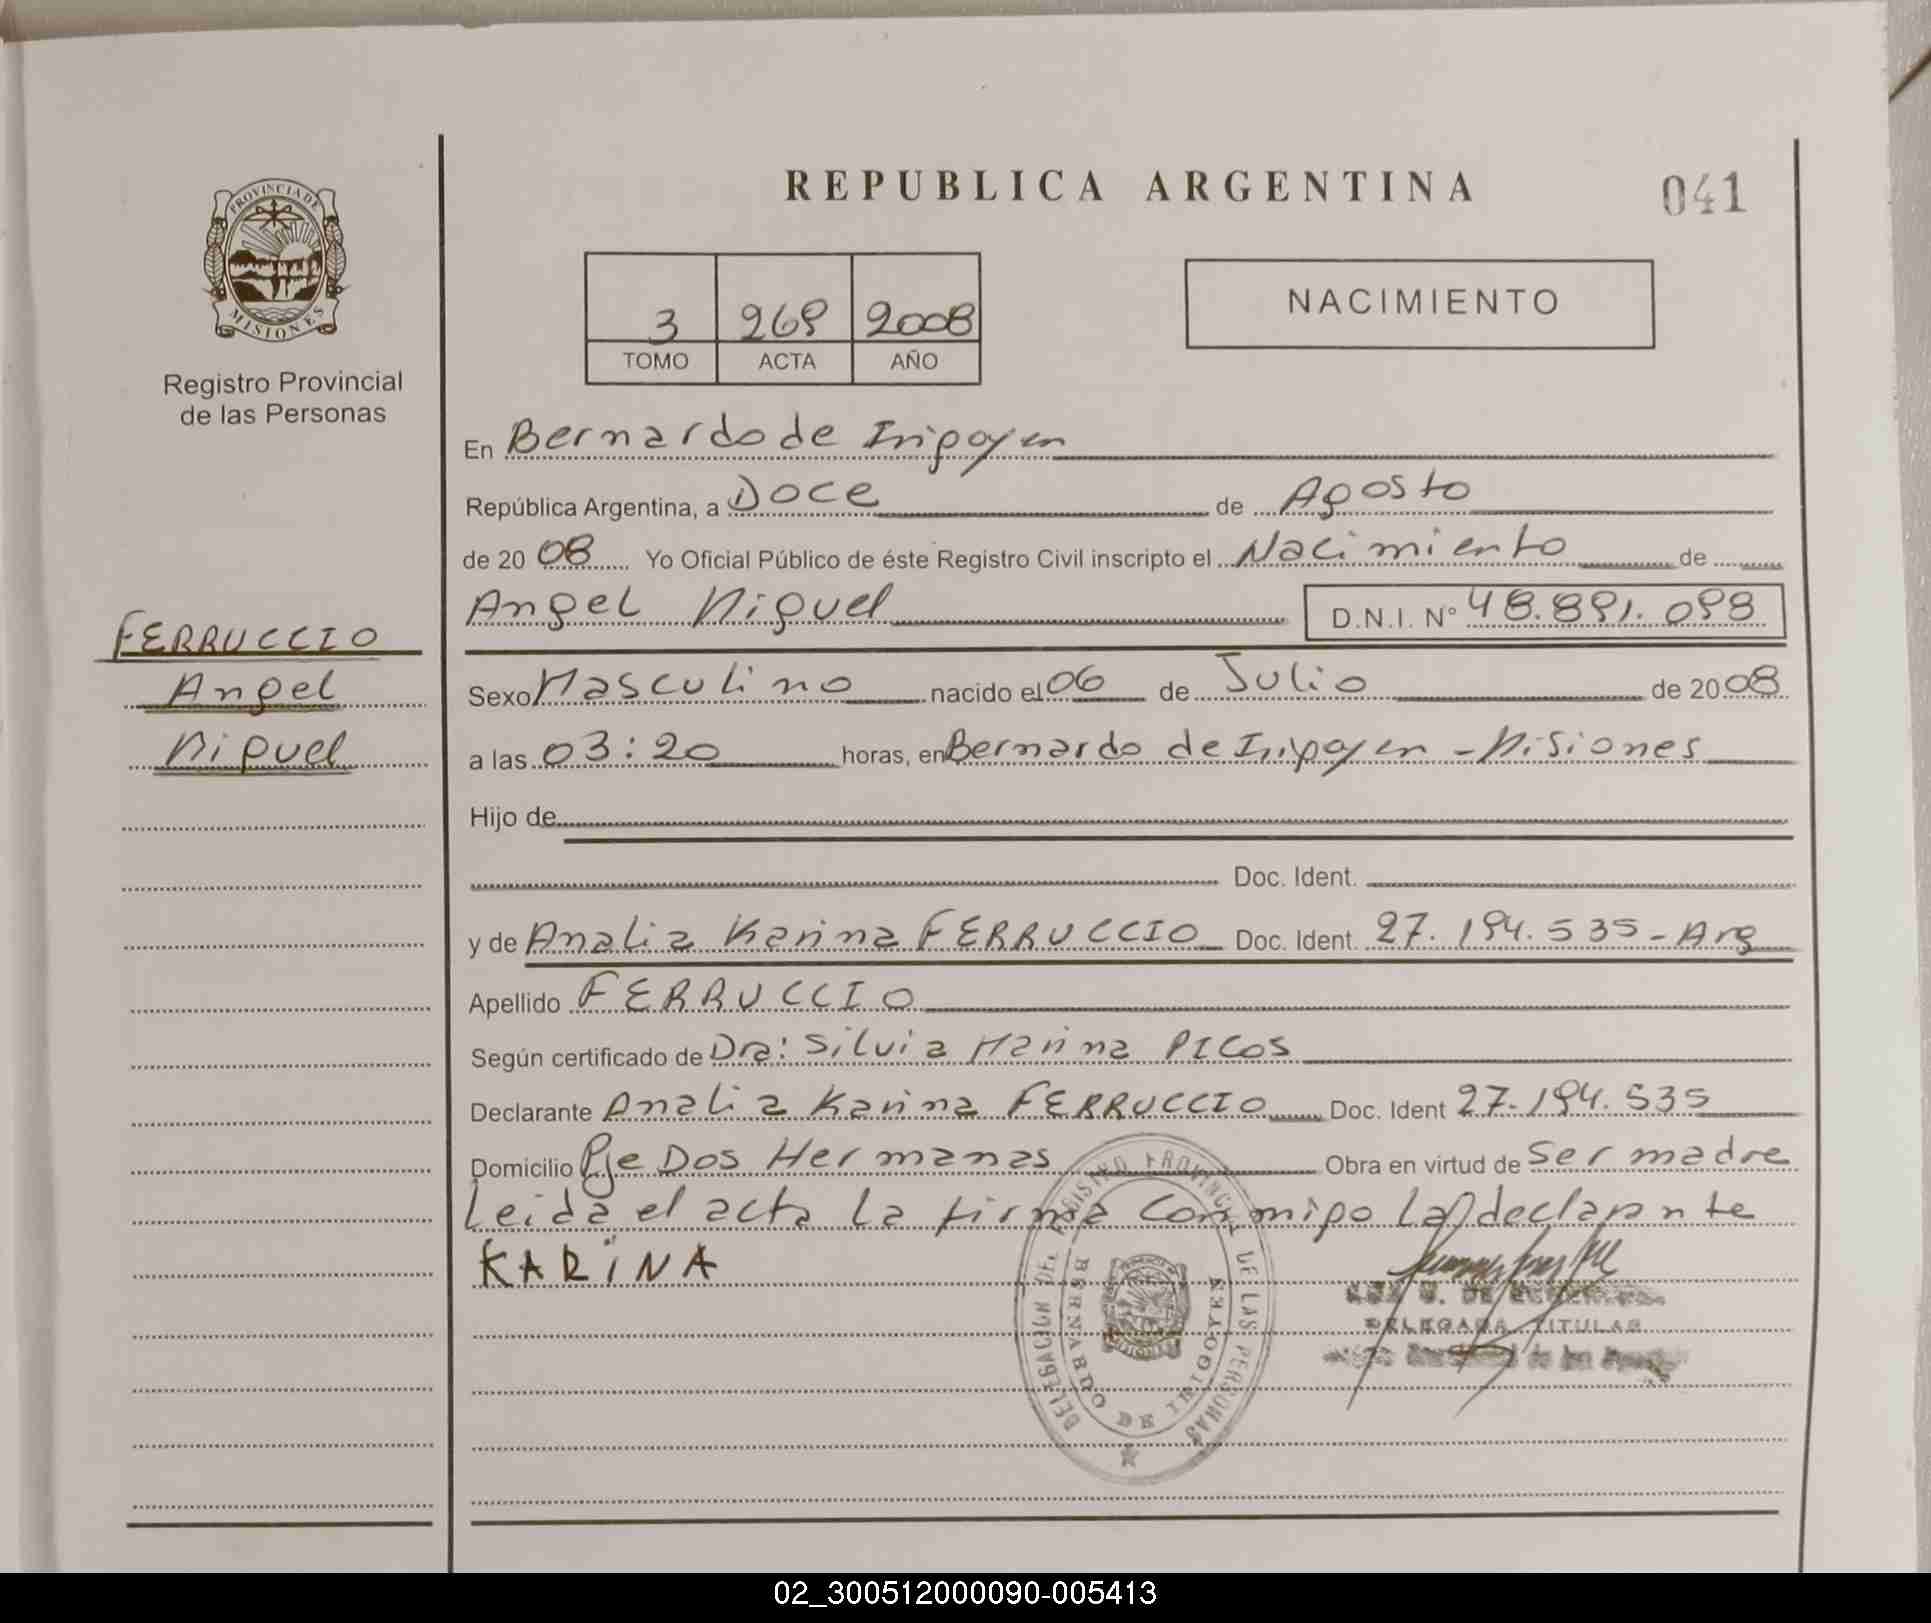 REPUBLICA ARGENTINA
041
PROVINCIA DE
MISIONES
Registro Provincial
de las Personas
3 269 2008
TOMO ACTA AÑO
NACIMIENTO
En Bernardo de Irigoyen
República Argentina, a Doce de Agosto
de 2008 Yo Oficial Público de éste Registro Civil inscripto el Nacimiento de
Angel Miguel D.N.I. Nº 48.891.098
FERRUCCIO
Angel
Miguel
Sexo Masculino nacido el 06 de Julio de 2008
a las 03:20 horas, en Bernardo de Irigoyen - Misiones
Hijo de
Doc. Ident.
y de Analia Karina FERRUCCIO Doc. Ident. 27.194.535 - Arg
Apellido FERRUCCIO
Según certificado de Dra: Silvia Marina PICOS
Declarante Analia Karina FERRUCCIO Doc. Ident 27.194.535
Domicilio Pje Dos Hermanas Obra en virtud de Ser madre
Leida el acta la firma conmigo la declarante
KARINA
DELEGACION DEL REGISTRO PROVINCIAL DE LAS PERSONAS
BERNARDO DE IRIGOYEN
DELEGADA TITULAR
02_300512000090-005413